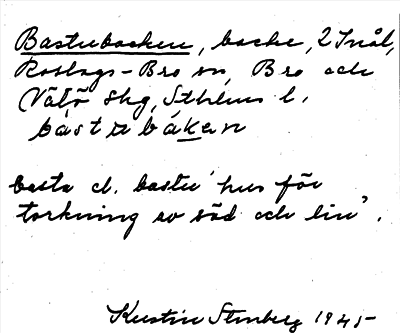 Bastubacken, backe, 2 Snål,
Roslags-Bro sn, Bro och
Vätö skg, Sthlms l.
bástabákan
basta el. bastu "hus för
torkning av säd och lin".
Kerstin Stenberg 1945